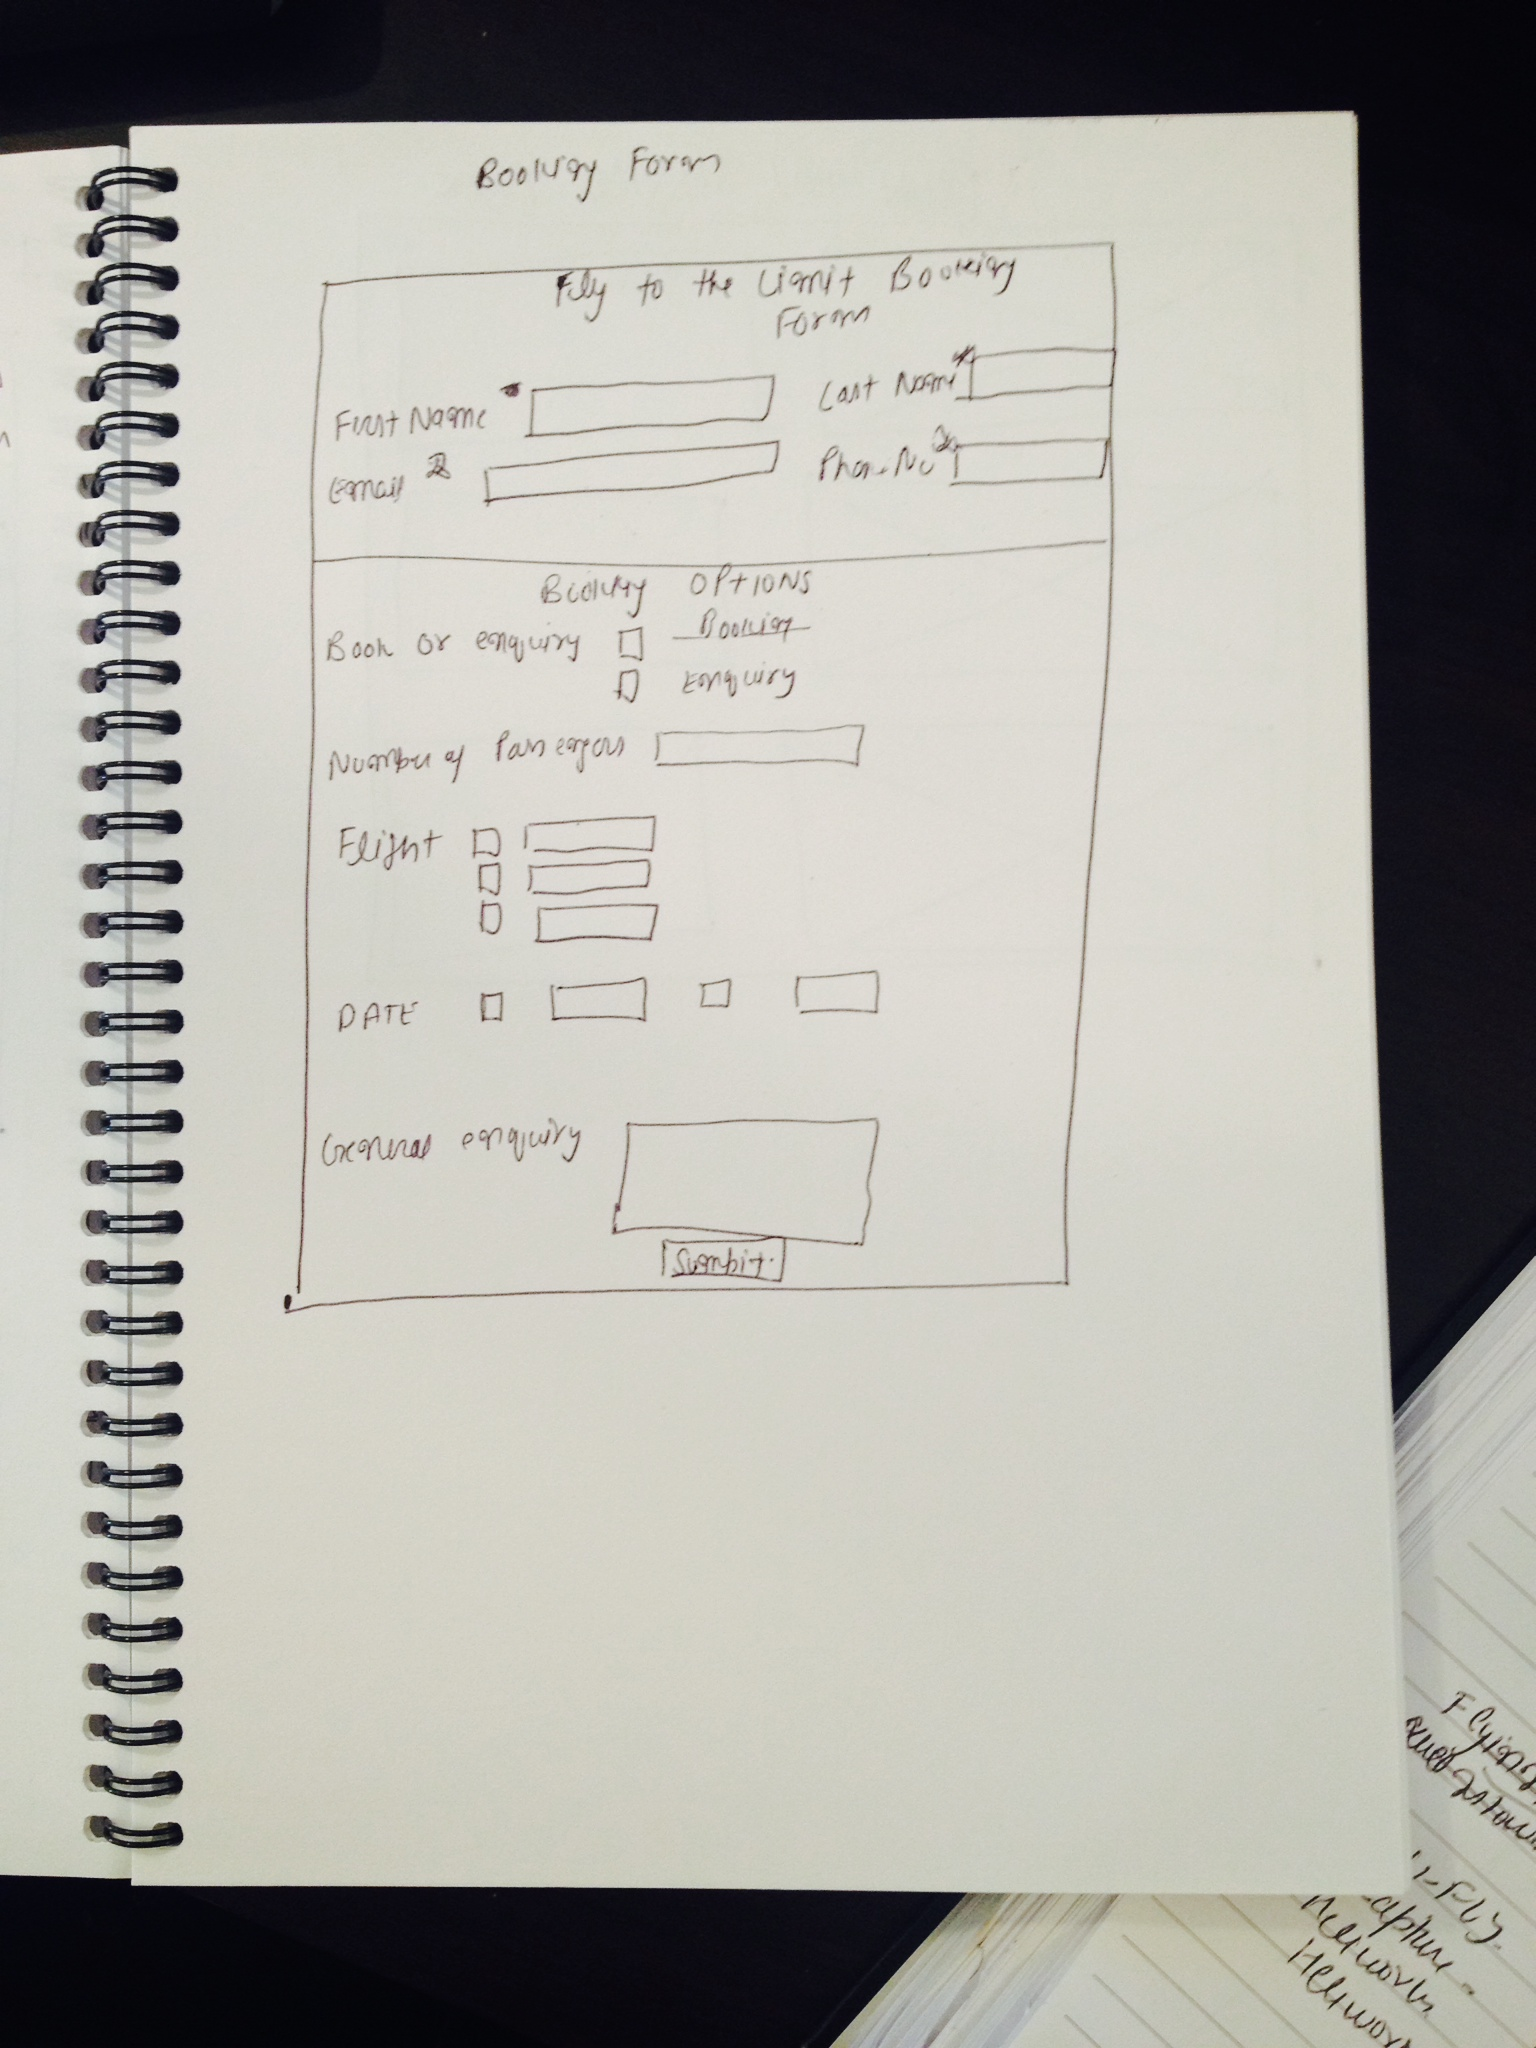 Booking Form
Fly to the Limit Booking
Form
First Name * Last Name *
Email * Phone No *
Booking OPTIONS
Book or enquiry Booking
Enquiry
Number of Passengers
Flight
DATE
General enquiry
Sumbit
Flying
1-Fly.